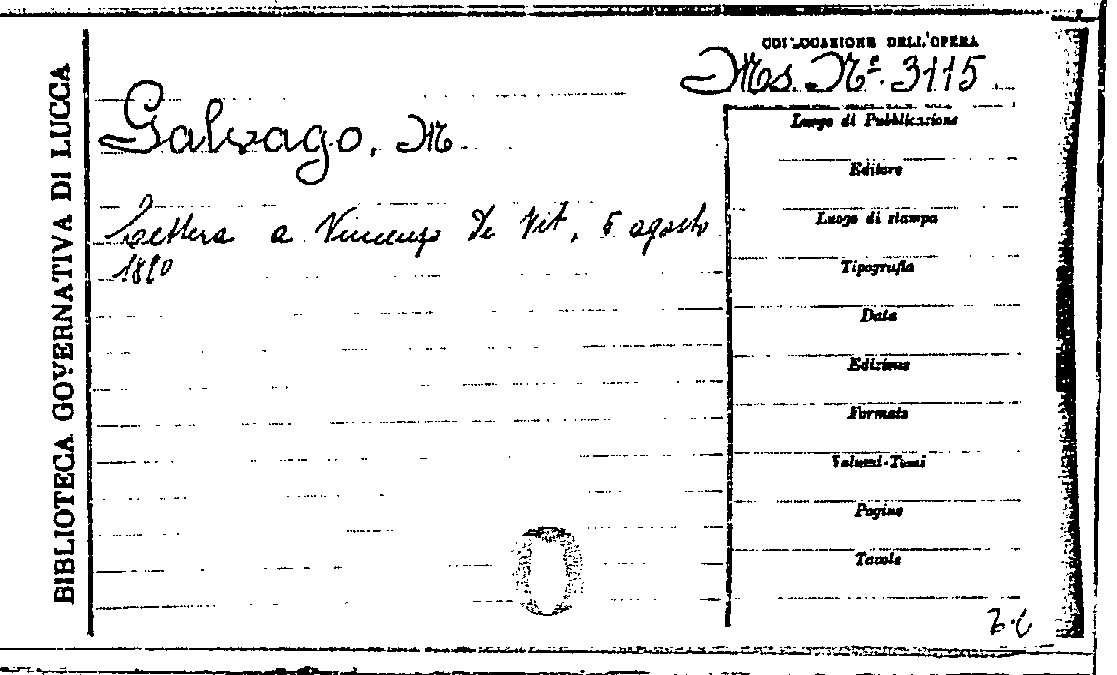 BIBLIOTECA GOVERNATIVA DI LUCCA
COLLOCAZIONE DELL'OPERA
Ms. Nº. 3115
Galvago, M.
Lettera a Vincenzo De Vit, 5 agosto
Luogo di Pubblicazione
Editore
Luogo di stampa
Tipografia
Data
Edizione
Formato
Volumi-Tomi
Pagine
Tavole